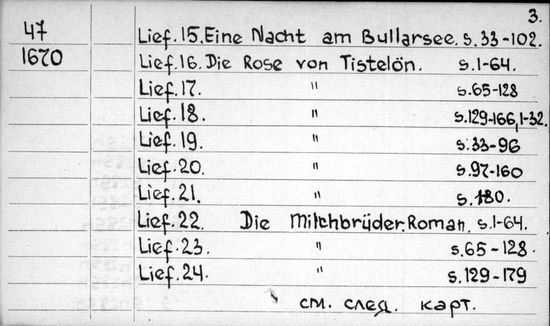 3.
47 Lief. 15. Eine Nacht am Bullarsee. s. 33-102.
1670 Lief. 16. Die Rose von Tistelön. s. 1-64.
Lief. 17. " s. 65-128
Lief. 18. " s. 129-166, 1-32.
Lief. 19. " s. 33-96
Lief. 20. " s. 97-160
Lief. 21. " s. 180.
Lief. 22. Die Milchbrüder. Roman. s. 1-64.
Lief. 23. " s. 65-128.
Lief. 24. " s. 129-179
см. след. карт.